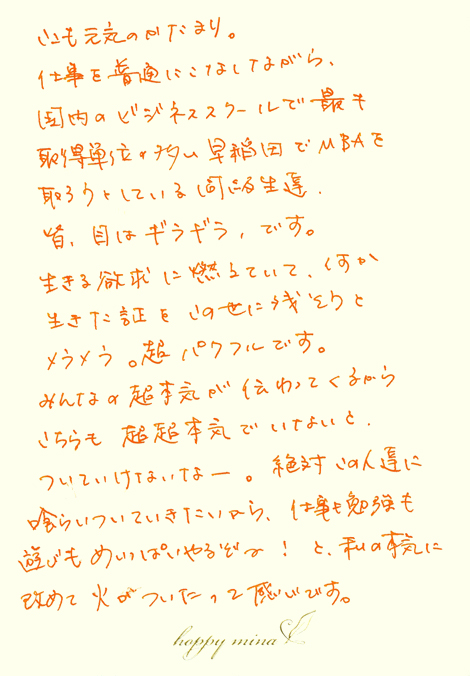 ここも元気のかたまり。
仕事を普通にこなしながら、
国内のビジネススクールで最も
取得単位の多い早稲田でMBAを
取ろうとしている同級生達．
皆、目はギラギラ，です。
生きる欲求に燃えていて、何か
生きた証をこの世に残そうと
メラメラ。超パワフルです。
みんなの超本気が伝わってくるから
こちらも超超本気でいないと、
ついていけないなー。絶対この人達に
喰らいついていきたいから、仕事も勉強も
遊びもめいっぱいやるぞー！と、私の本気に
改めて火がついたって感じです。
happy mina